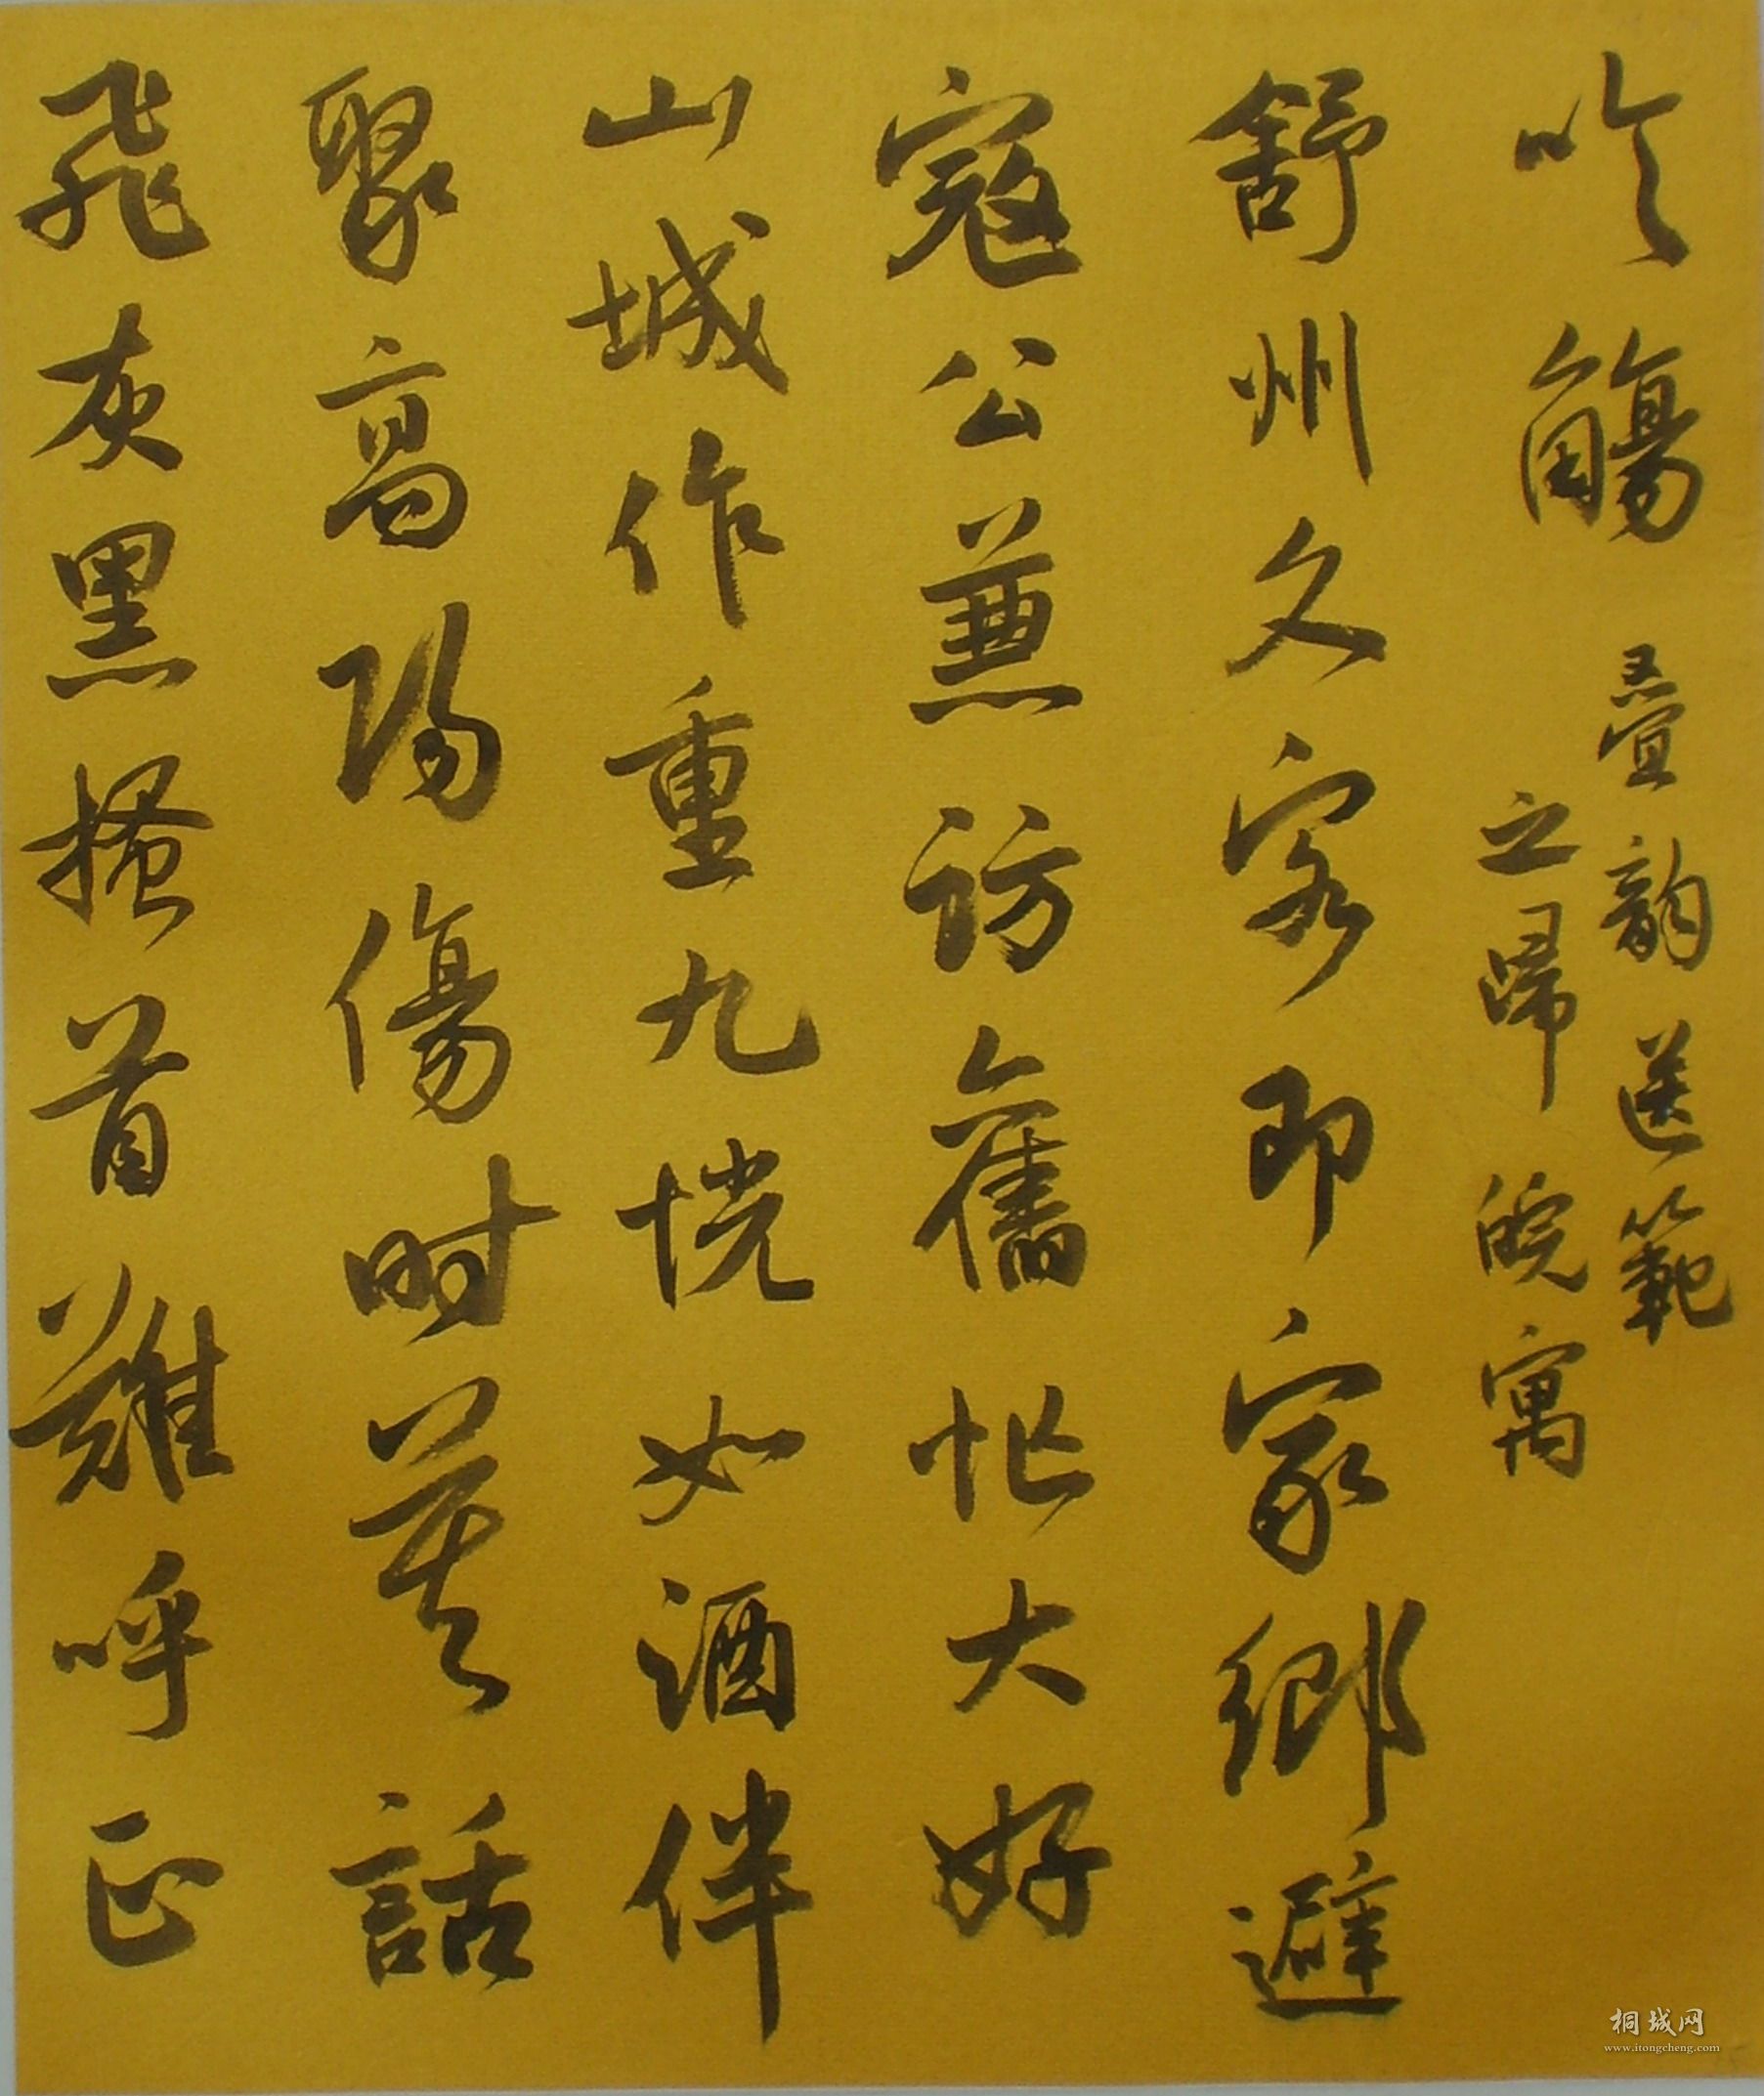 吟觴
疊韵送範
之歸皖寓
舒州久客即家鄉避
寇公兼訪舊忙大好
山城作重九恍如酒伴
聚高陽傷時莫話
飛灰黑搔首難呼正
桐城网
www.itongcheng.com